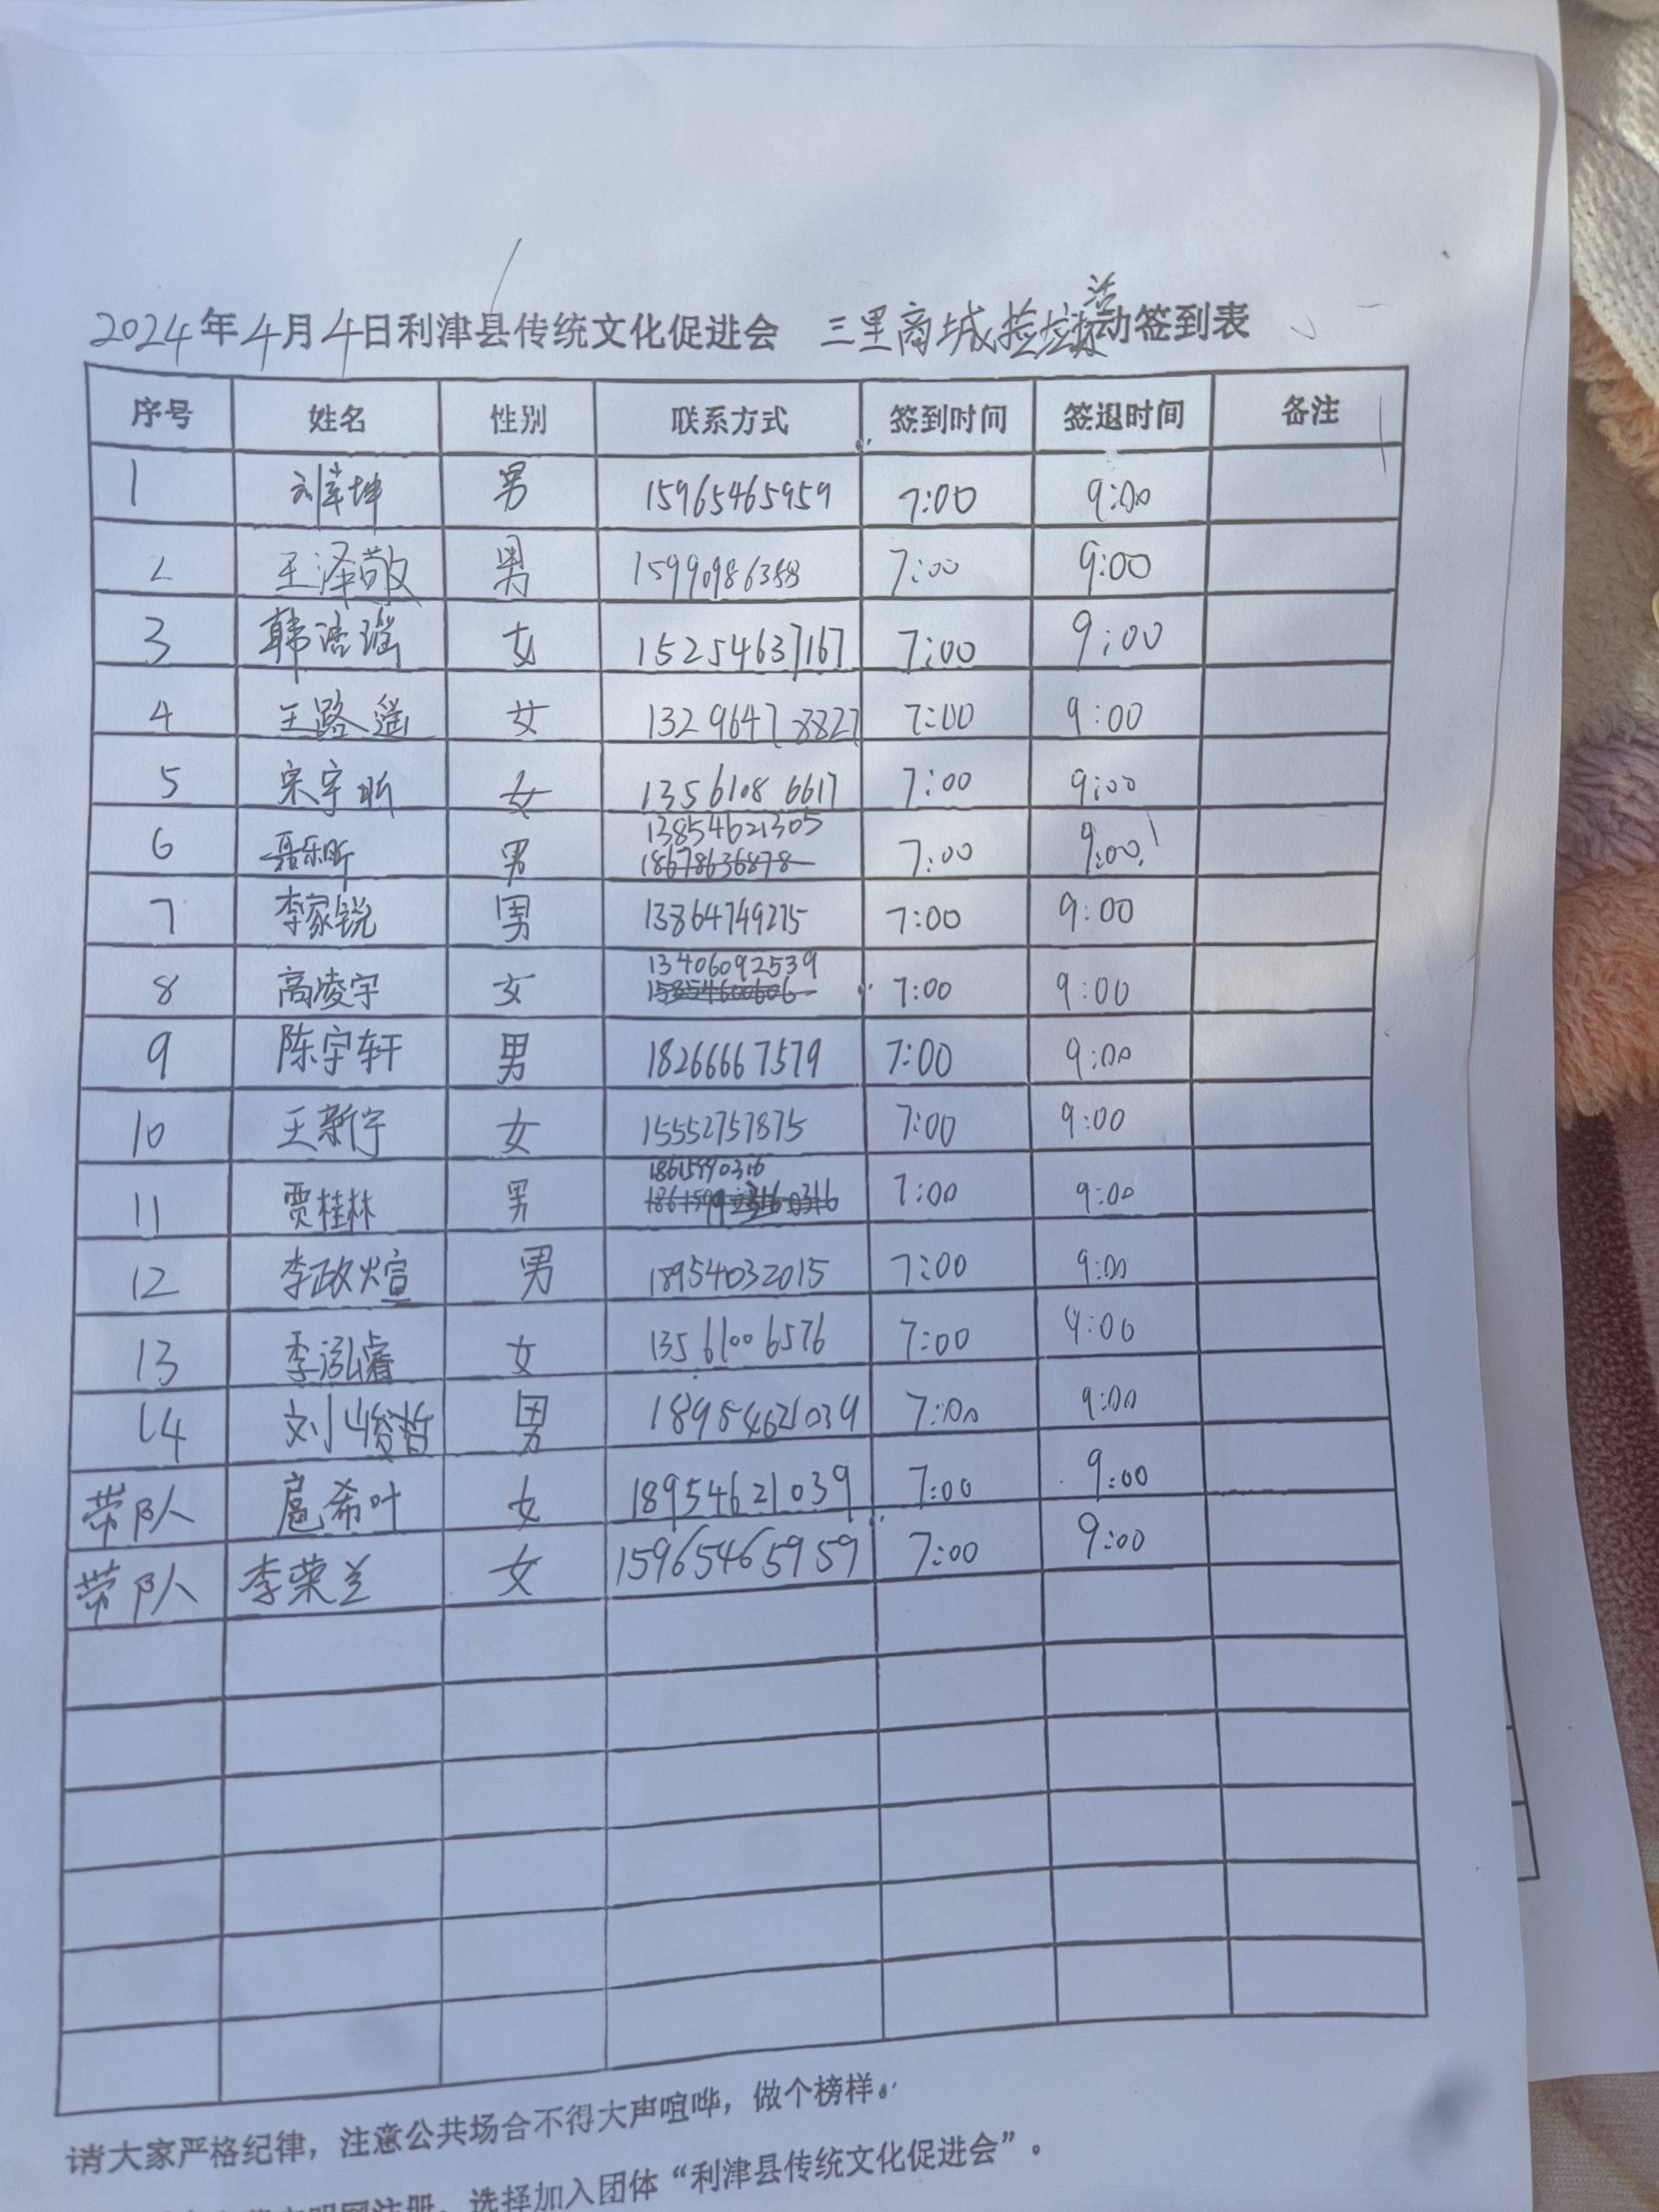 2024年4月4日利津县传统文化促进会 三里商城捡垃圾活动签到表
序号 姓名 性别 联系方式 签到时间 签退时间 备注
1 刘宰坤 男 15965465959 7:00 9:00
2 王泽敬 男 15990986388 7:00 9:00
3 韩浯瑶 女 15254637167 7:00 9:00
4 王路遥 女 13296478827 7:00 9:00
5 宋宇昕 女 13561086617 7:00 9:00
6 聂乐昕 男 13854621305 7:00 9:00
18678636878
7 李家锐 男 13864749275 7:00 9:00
8 高凌宇 女 13406092539 7:00 9:00
15854600606
9 陈宇轩 男 18266667579 7:00 9:00
10 王新宇 女 15552757875 7:00 9:00
11 贾桂林 男 18615990316 7:00 9:00
12 李政煊 男 18954032015 7:00 9:00
13 李泓睿 女 13561006576 7:00 9:00
14 刘峻哲 男 18954621039 7:00 9:00
带队 扈希叶 女 18954621039 7:00 9:00
带队 李荣兰 女 15965465959 7:00 9:00
请大家严格纪律，注意公共场合不得大声喧哗，做个榜样。
网注册，选择加入团体“利津县传统文化促进会”。